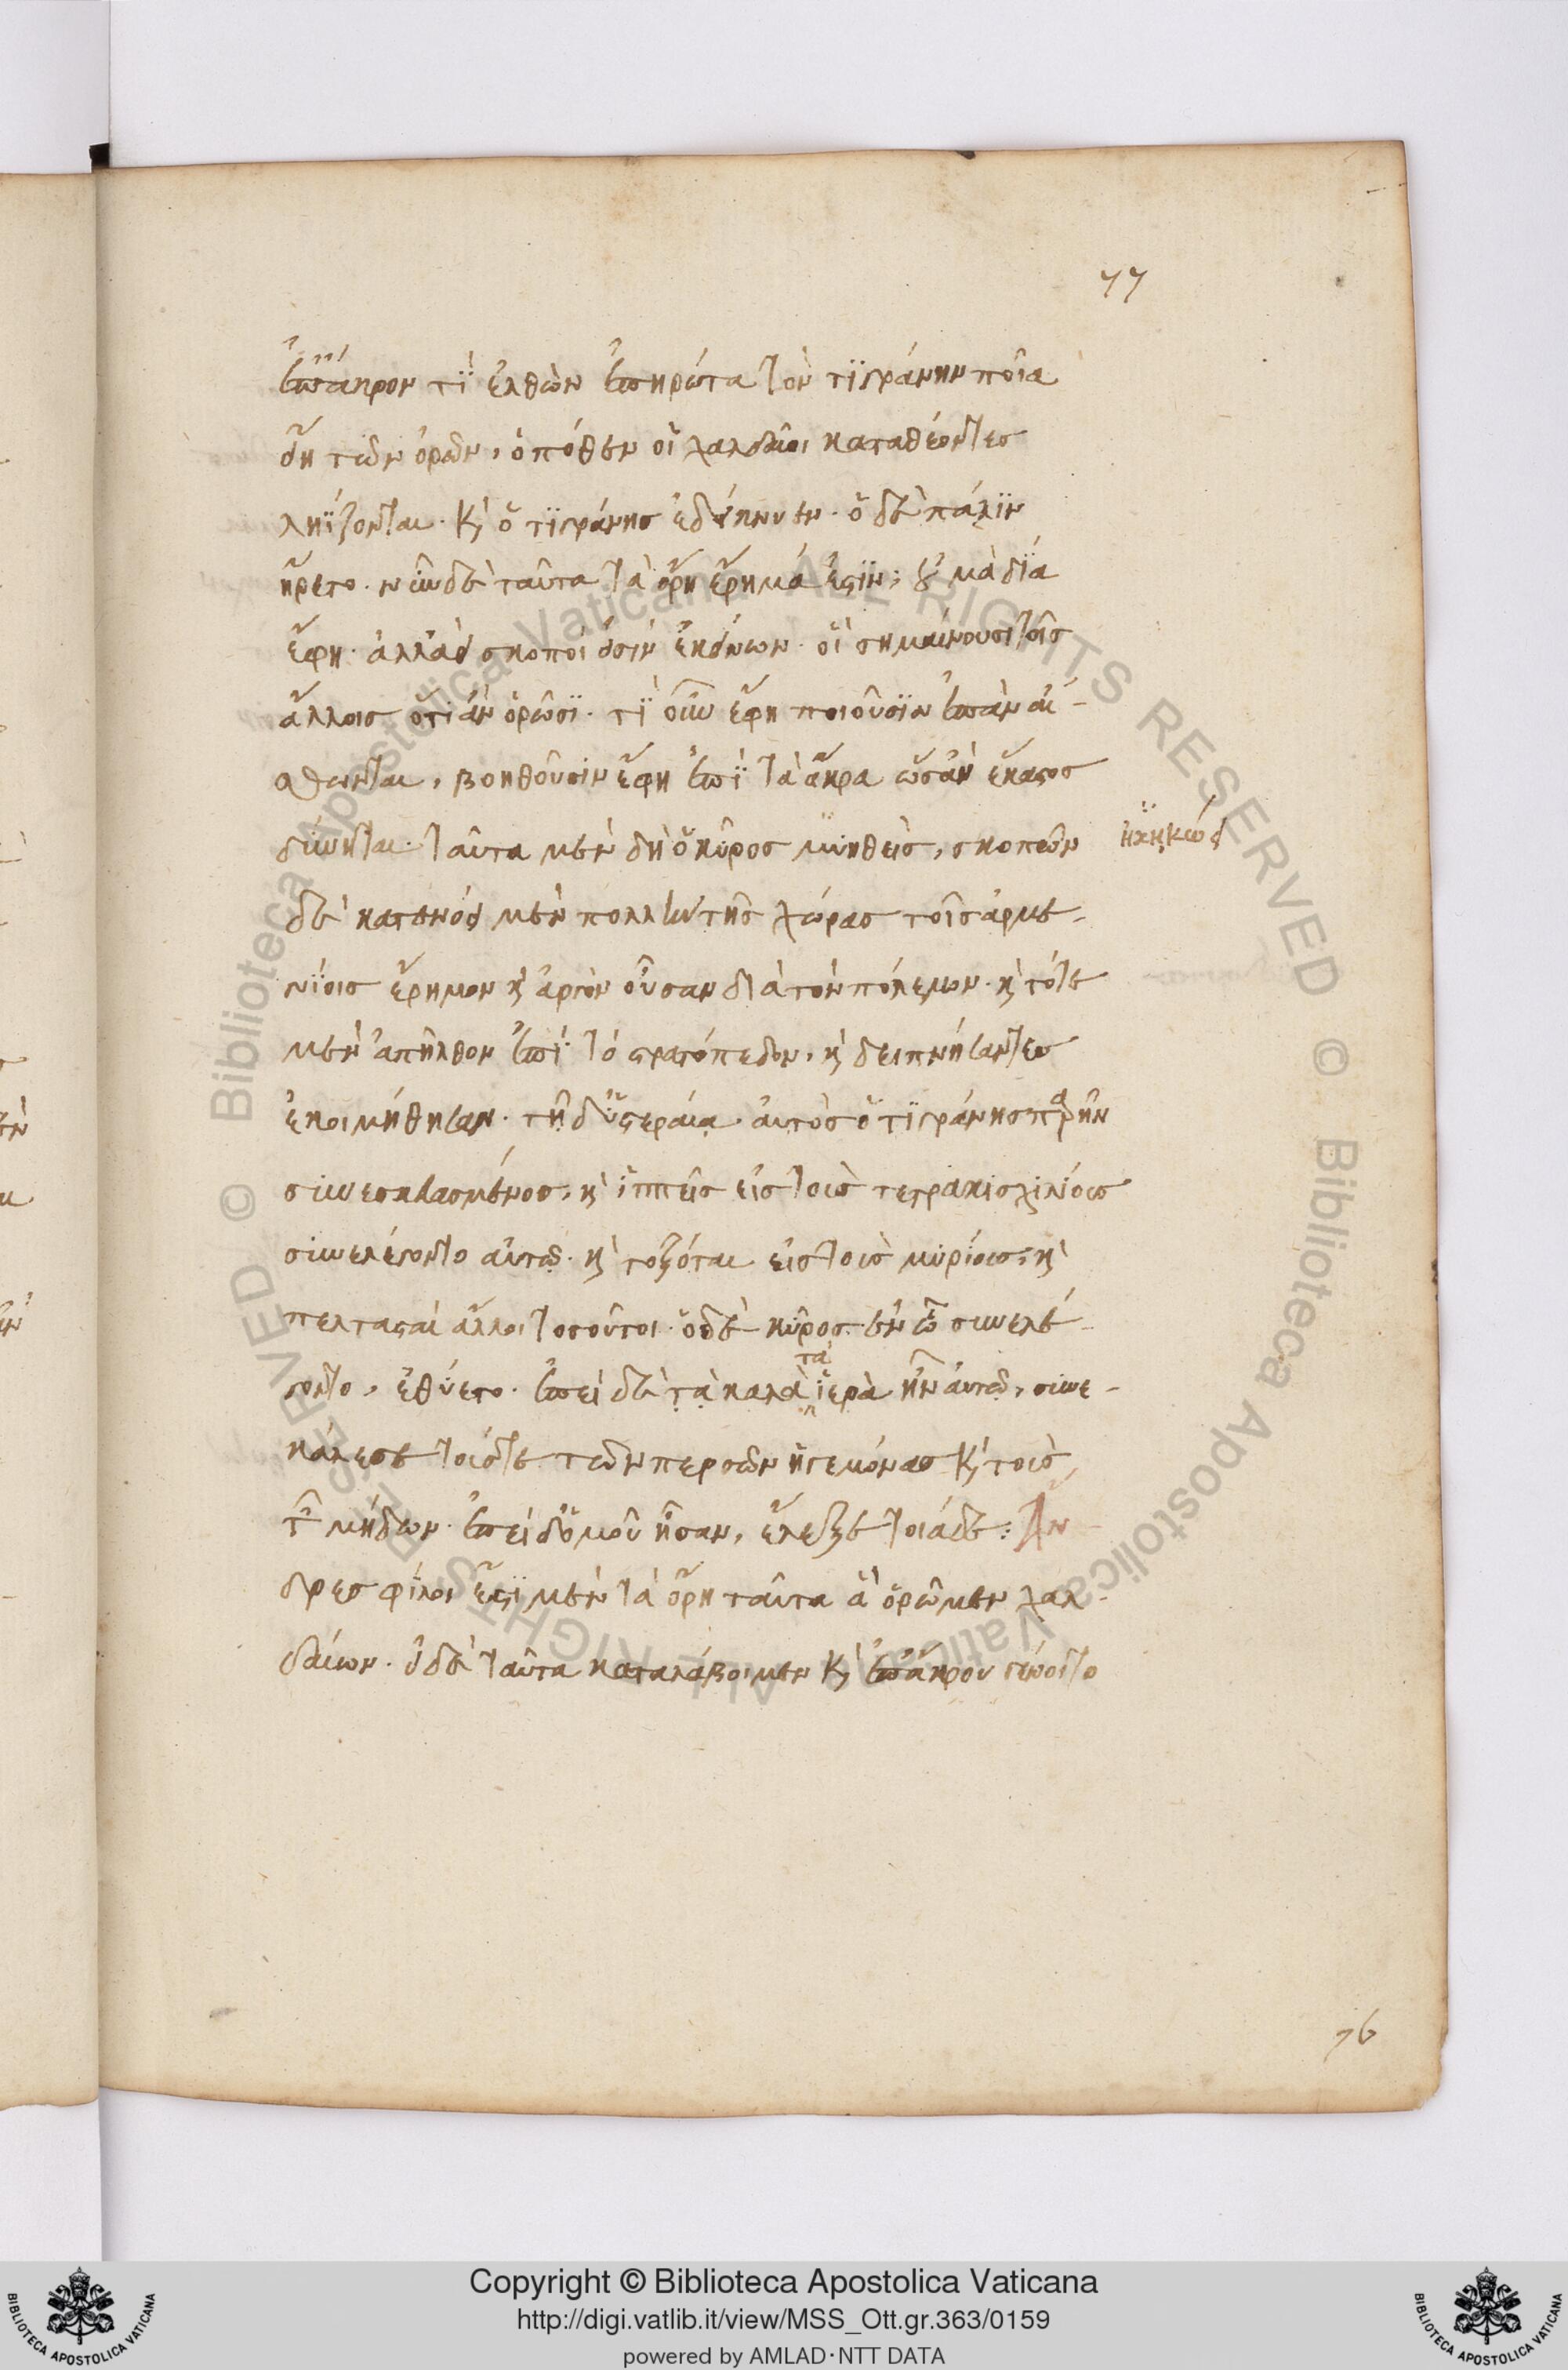 77
ἐπάκρον τὶ ἐλθὼν ἐπηρώτα τὸν τιγράνην ποῖα
εἴη τῶν ὀρῶν, ὁπόθεν οἱ χαλδαῖοι καταθέοντες
ληίζονται. κ̀ ὁ τιγράνης ἐδείκνυεν. ὁ δὲ πάλιν
ἤρετο. νῦν δὲ ταῦτα τὰ ὄρη ἔρημά ἐστιν; οὐ μὰ δία
ἔφη. ἀλλ' ἀεὶ σκοποί εἰσὶν ἐκείνων. οἳ σημαίνουσι τοῖς
ἄλλοις ὅτι ἂν ὁρῶσι. τί οὖν ἔφη ποιοῦσιν ἐπὰν αἴ-
σθωνται, βοηθοῦσιν ἔφη ἐπὶ τὰ ἄκρα ὡς ἂν ἕκαστος
δύνηται. ταῦτα μὲν δὴ ὁ κῦρος
σκοπῶν
δὲ κατενόει μὲν πολλὴν τῆς χώρας τοῖς ἀρμε-
νίοις ἔρημον κ̀ ἀργὸν οὖσαν διὰ τὸν πόλεμον. κ̀ τότε
μὲν ἀπῆλθον ἐπὶ τὸ στρατόπεδον, κ̀ δειπνήσαντες
ἐκοιμήθησαν. τῇ δ' ὑστεραίᾳ. αὐτὸς ὁ τιγράνης παρῆν
συνεσκευασμένος, κ̀ ἱππεῖς εἰς τοὺς τετρακισχιλίους
συνελέγοντο αὐτῷ. κ̀ τοξόται εἰς τοὺς μυρίους, κ̀
πελτασταὶ ἄλλοι τοσοῦτοι. ὁ δὲ κῦρος ἐν ᾧ συνελέ-
γοντο, ἐθύετο. ἐπεὶ δὲ τὰ καλὰ τὰ ἱερὰ ἦν αὐτῷ, συνε-
κάλεσε τούς τε τῶν περσῶν ἡγεμόνας κ̀ τοὺς
τῶν μήδων. ἐπεὶ δ' ὁμοῦ ἦσαν, ἔλεξε τοιάδε: Ἄν-
δρες φίλοι ἔστι μὲν τὰ ὄρη ταῦτα ἃ ὁρῶμεν χαλ-
δαίων. εἰ δὲ ταῦτα καταλάβοιμεν κ̀ ἐπάκρου γένοιτο
76
Copyright © Biblioteca Apostolica Vaticana
http://digi.vatlib.it/view/MSS_Ott.gr.363/0159
powered by AMLAD·NTT DATA